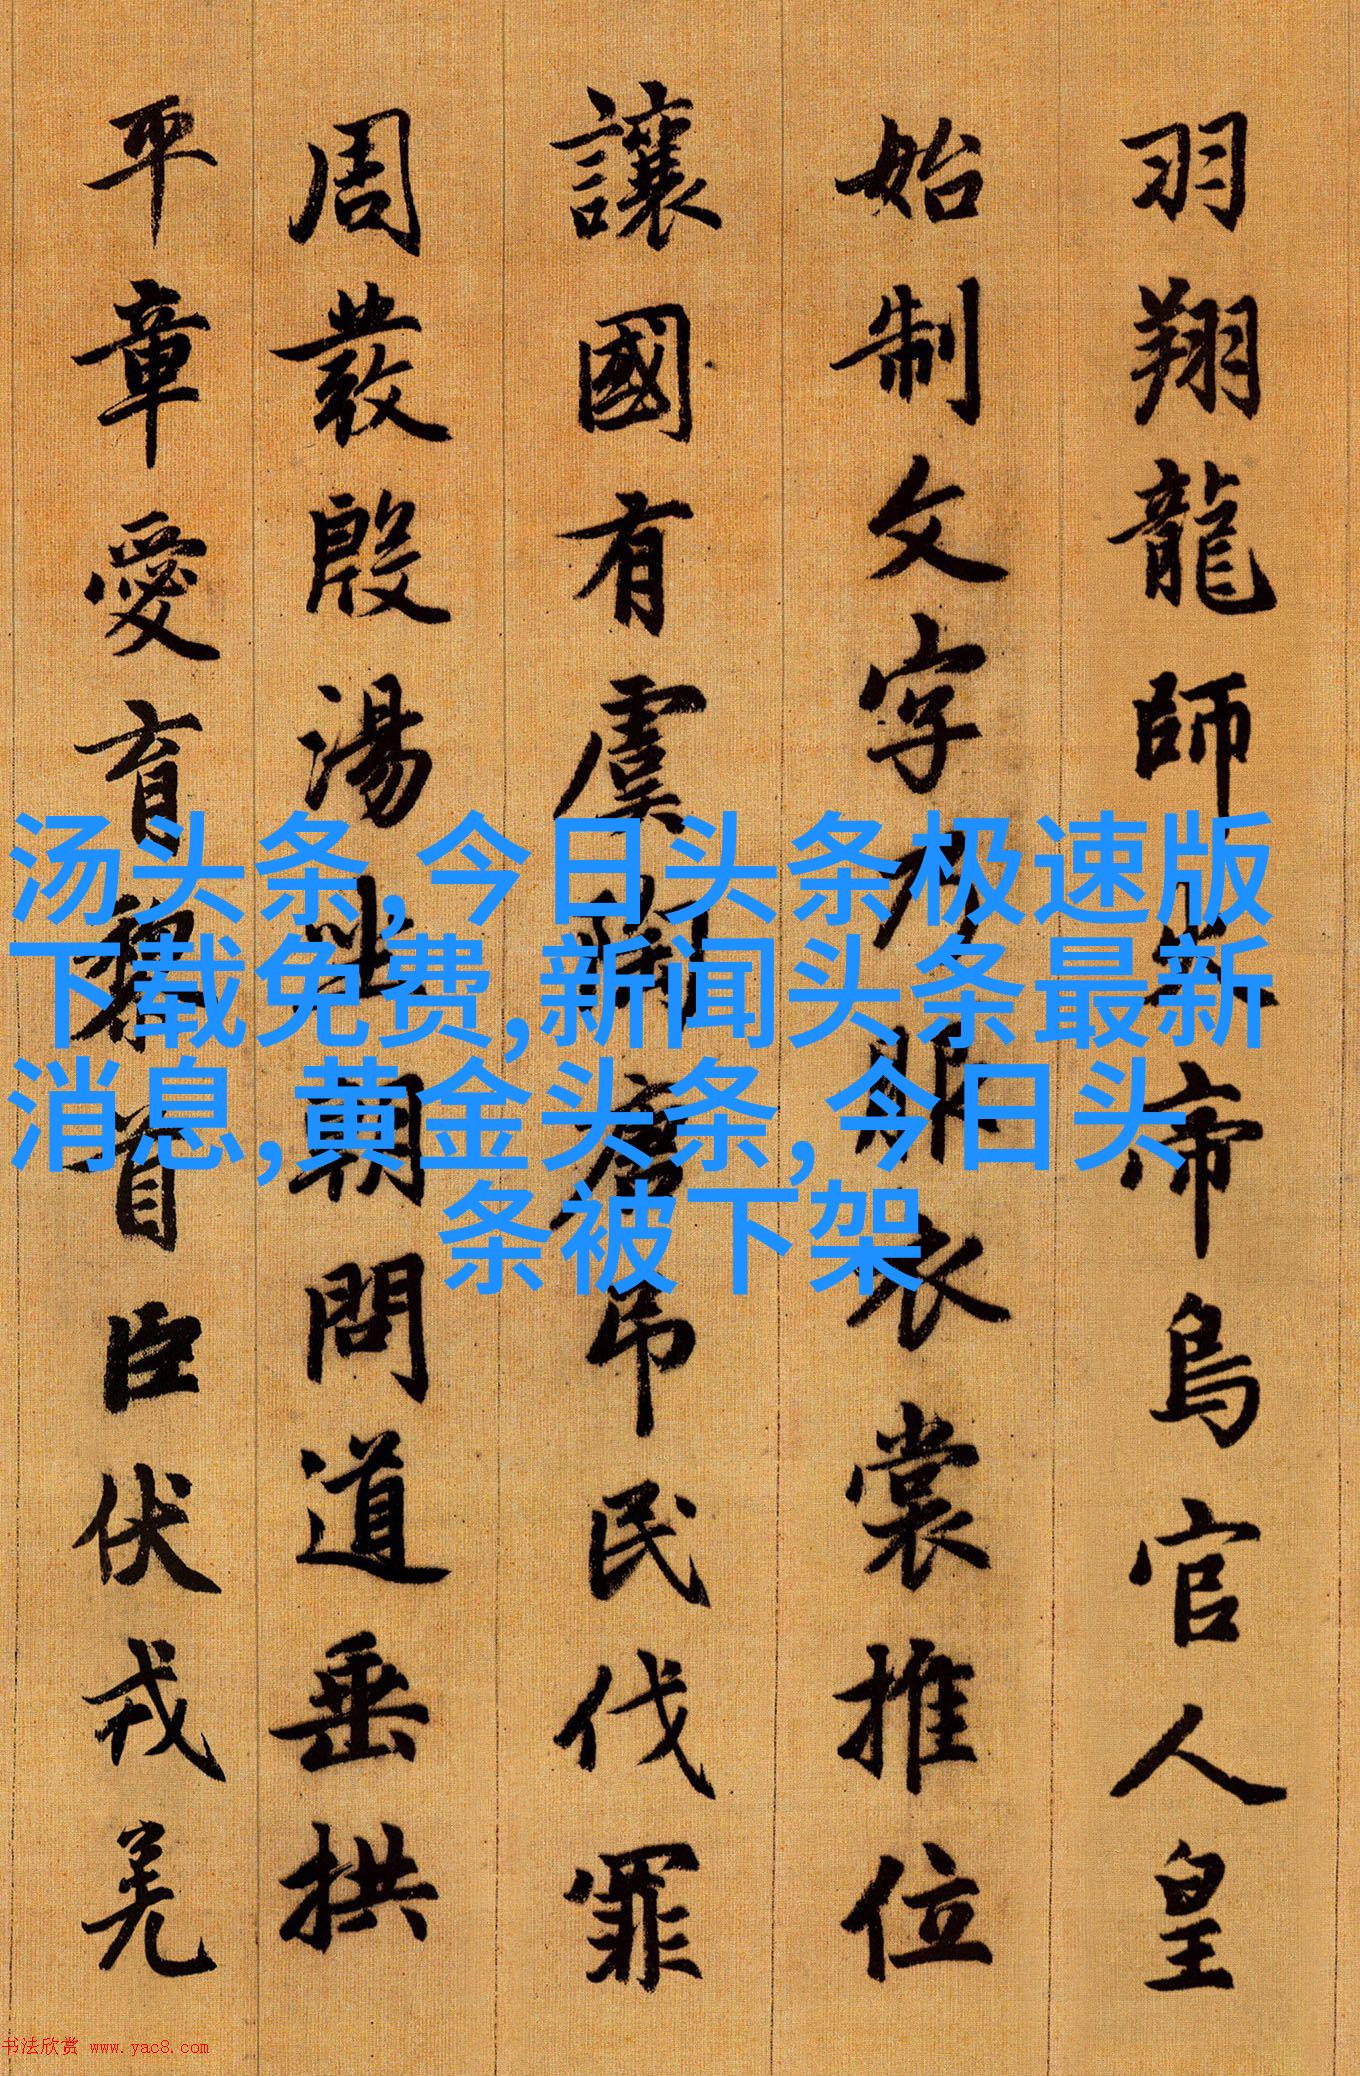 羽翔龍師火帝鳥官人皇
始制文字乃服衣裳推位
讓國有虞陶唐吊民伐罪
周發殷湯坐朝問道垂拱
平章愛育黎首臣伏戎羌
汤头条,今日头条极速版
下载免费,新闻头条最新
消息,黄金头条,今日头
条被下架
书法欣赏 www.yac8.com